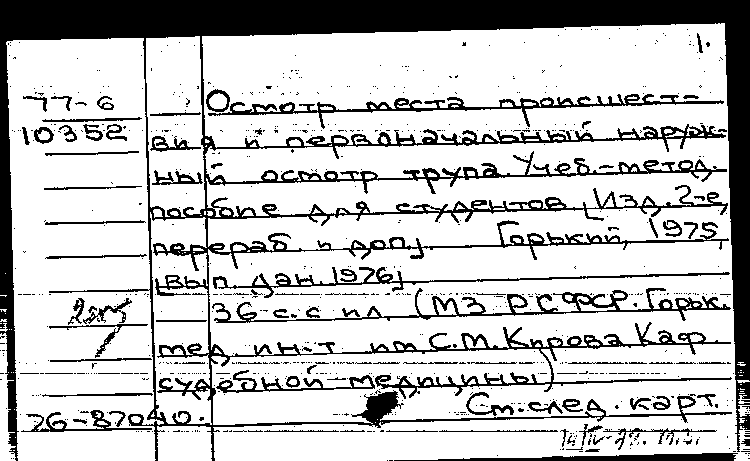 1.
77-6
10352
Осмотр места происшест-
вия и первоначальный наруж-
ный осмотр трупа. Учеб.-метод.
пособие для студентов. [Изд. 2-е,
перераб. и доп]. Горький, 1975,
[вып. дан. 1976].
36 с. с ил. (МЗ РСФСР. Горьк.
мед. ин-т им. С.М. Кирова. Каф.
судебной медицины)
76-87040.
См. след. карт.